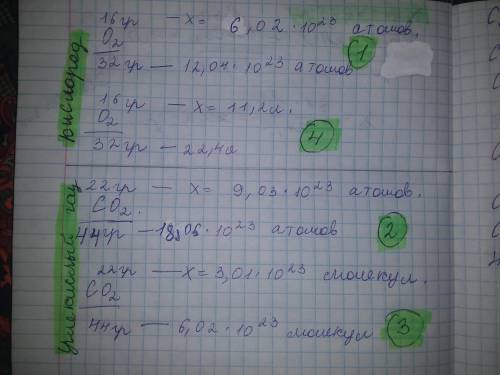 Кислород
16 гр — x = 6,02 · 10²³ атомов.
O₂
32 гр — 12,04 · 10²³ атомов
1
16 гр — x = 11,2 л.
O₂
32 гр — 22,4 л
4
Углекислый газ
22 гр — x = 9,03 · 10²³ атомов.
CO₂.
44 гр — 18,06 · 10²³ атомов
2
22 гр — x = 3,01 · 10²³ молекул.
CO₂
44 гр — 6,02 · 10²³ молекул
3